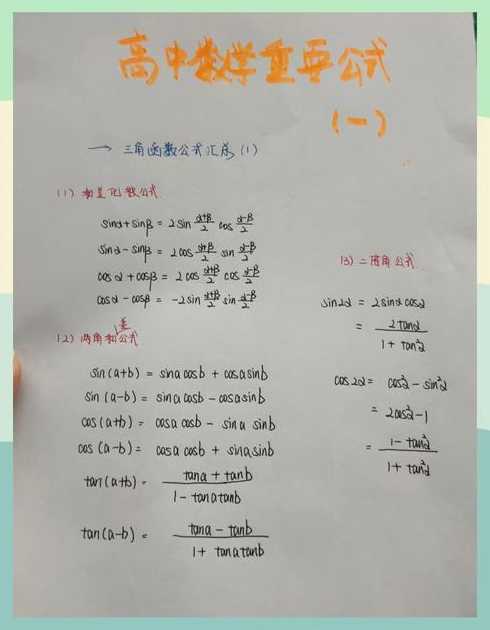 高中数学重要公式
(一)
→ 三角函数公式汇总 (1)
(1) 和差化积公式
sinα+sinβ = 2sin (α+β)/2 cos (α-β)/2
sinα-sinβ = 2cos (α+β)/2 sin (α-β)/2
cosα+cosβ = 2cos (α+β)/2 cos (α-β)/2
cosα-cosβ = -2sin (α+β)/2 sin (α-β)/2
(2) 两角和差公式
sin(a+b) = sina cosb + cosa sinb
sin(a-b) = sina cosb - cosa sinb
cos(a+b) = cosa cosb - sina sinb
cos(a-b) = cosa cosb + sina sinb
tan(a+b) = (tana + tanb)/(1 - tana tanb)
tan(a-b) = (tana - tanb)/(1 + tana tanb)
(3) 二倍角公式
sin2α = 2sinα cosα
= 2tanα/(1 + tan²α)
cos2α = cos²α - sin²α
= 2cos²α - 1
= (1 - tan²α)/(1 + tan²α)